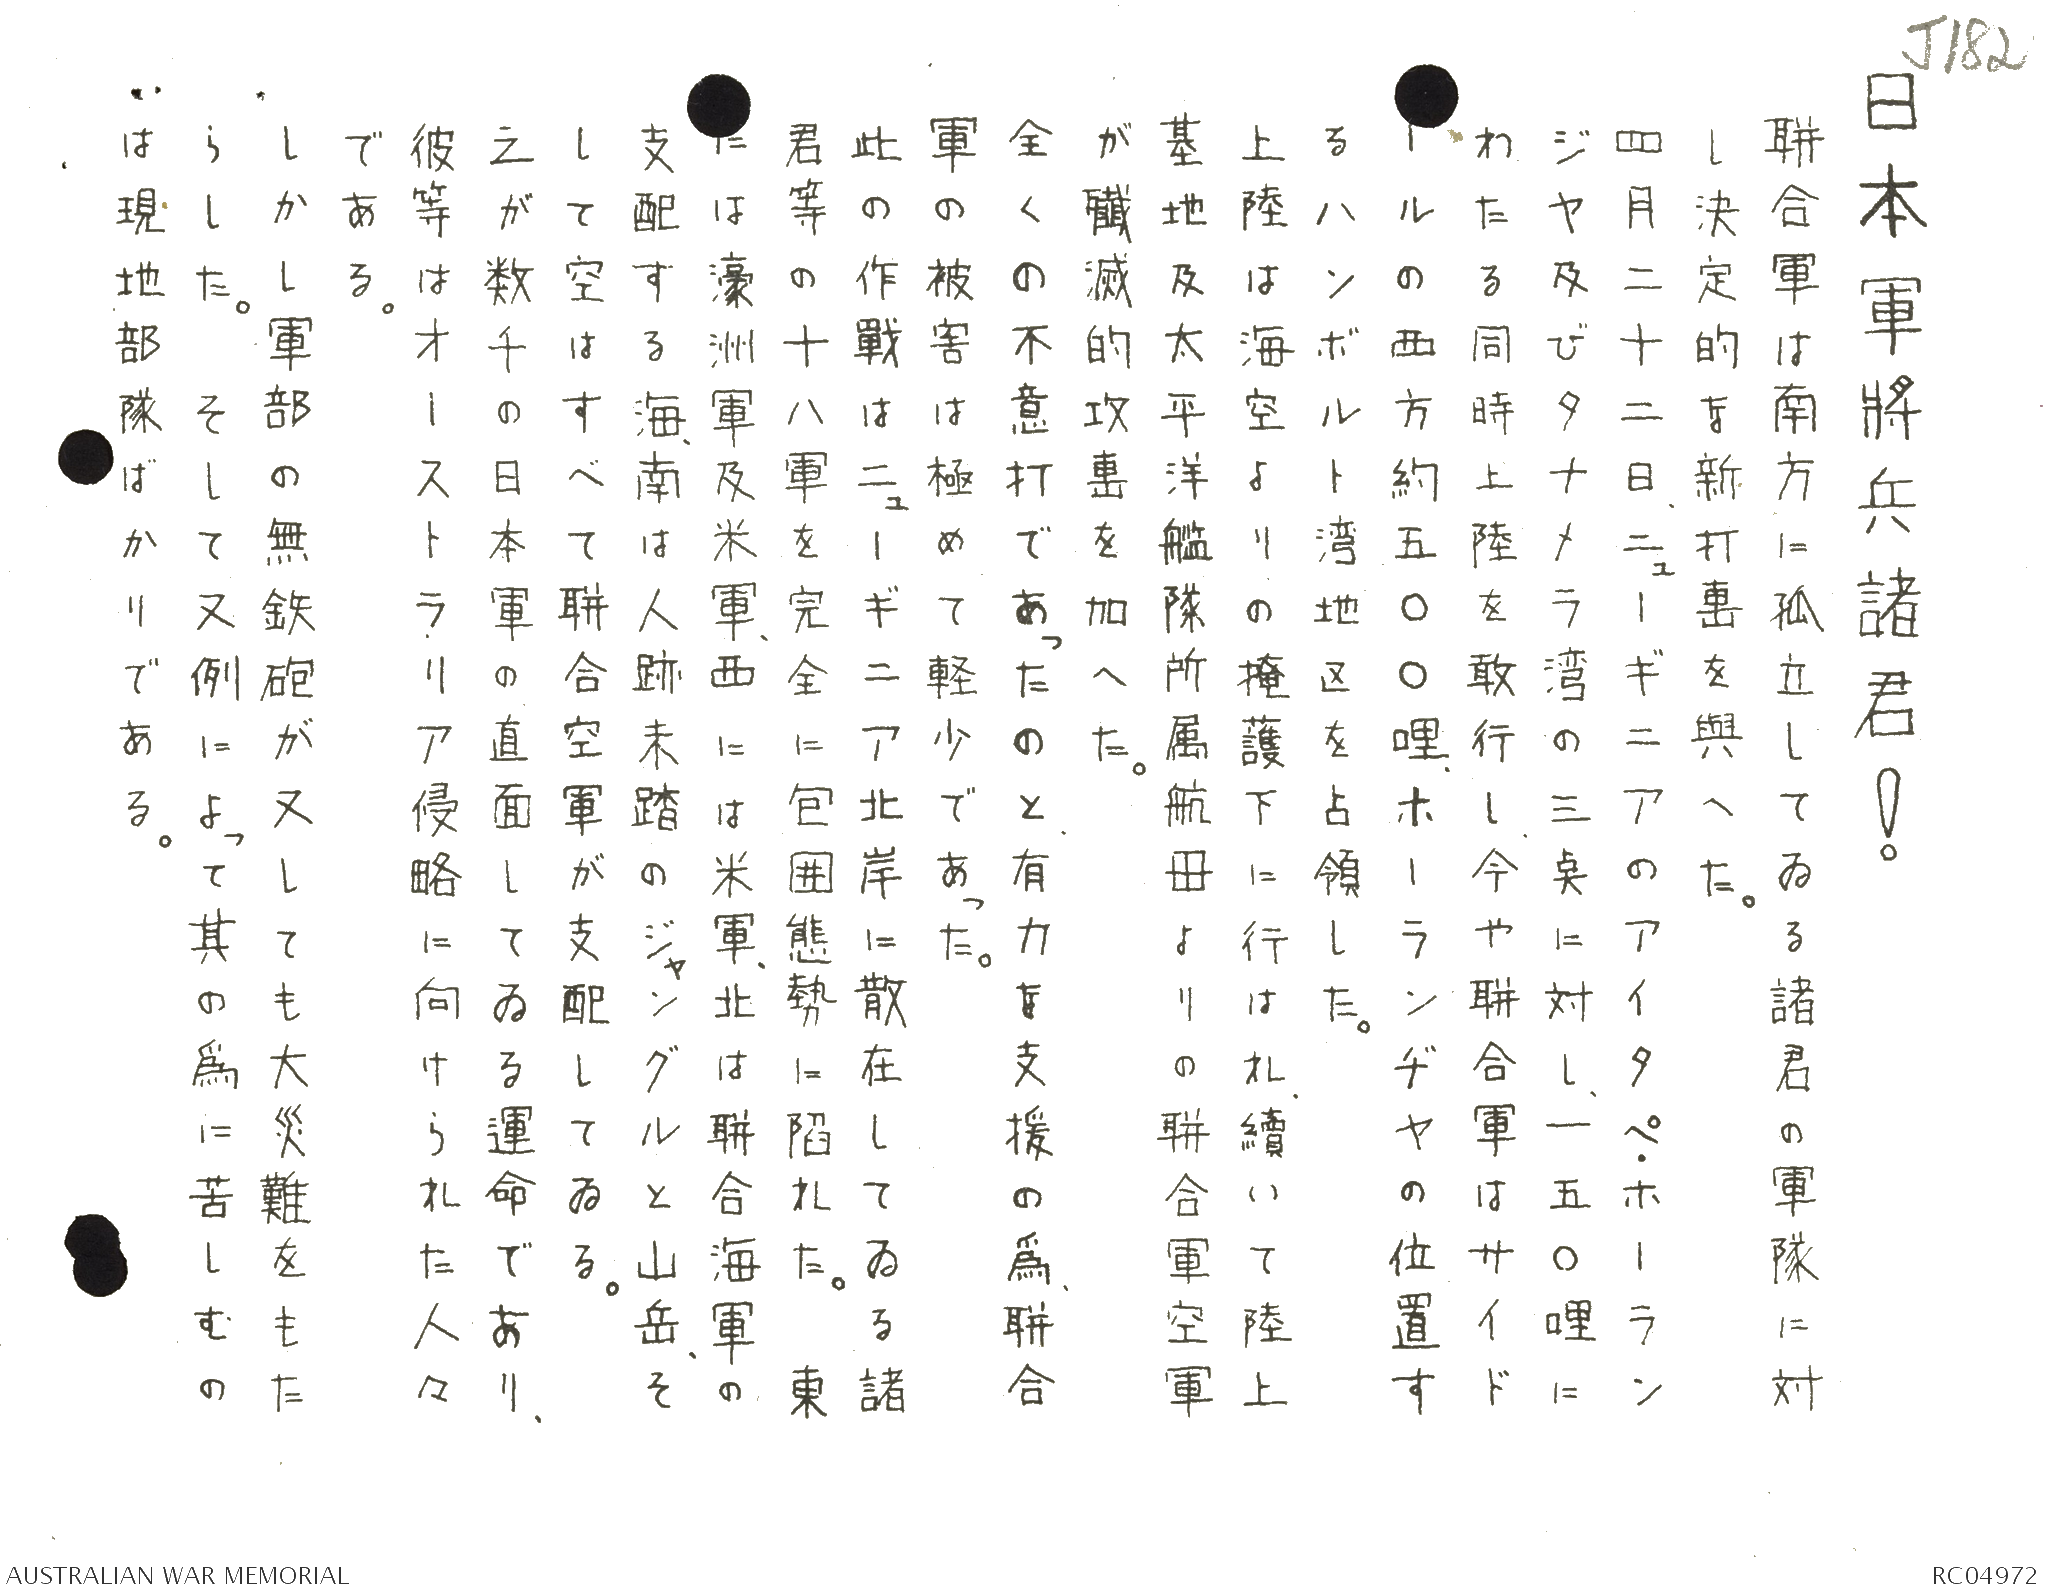 J182
日本軍將兵諸君！
聯合軍は南方に孤立してゐる諸君の軍隊に対
し決定的な新打撃を與へた。
四月二十二日、ニューギニアのアイタペ・ホーラン
ジヤ及びタナメラ湾の三奌に対し、一五〇哩に
わたる同時上陸を敢行し、今や聯合軍はサイド
ールの西方約五〇〇哩、ホーランヂヤの位置す
るハンボルト湾地区を占領した。
上陸は海空よりの掩護下に行はれ、續いて陸上
基地及太平洋艦隊所属航母よりの聯合軍空軍
が殲滅的攻撃を加へた。
全くの不意打であったのと、有力な支援の為、聯合
軍の被害は極めて軽少であった。
此の作戰はニューギニア北岸に散在してゐる諸
君等の十八軍を完全に包囲態勢に陷れた。　東
には濠洲軍及米軍、西には米軍、北は聯合海軍の
支配する海、南は人跡未踏のジャングルと山岳、そ
して空はすべて聯合空軍が支配してゐる。
之が数千の日本軍の直面してゐる運命であり、
彼等はオーストラリア侵略に向けられた人々
である。
しかし軍部の無鉄砲が又しても大災難をもた
らした。　そして又例によって其の爲に苦しむの
は現地部隊ばかりである。
AUSTRALIAN WAR MEMORIAL
RC04972